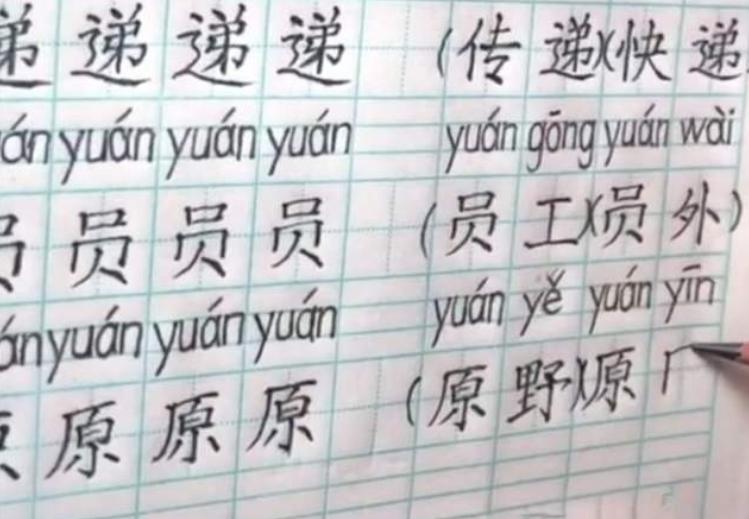 递 递 递 递 (传 递)(快 递
yuán yuán yuán yuán yuán gōng yuán wài
员 员 员 员 (员 工)(员 外)
yuán yuán yuán yuán yuán yě yuán yīn
原 原 原 原 (原 野)(原